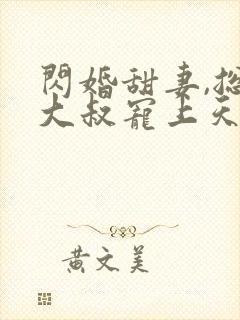 閃婚甜妻,
大叔寵上天
黃文美